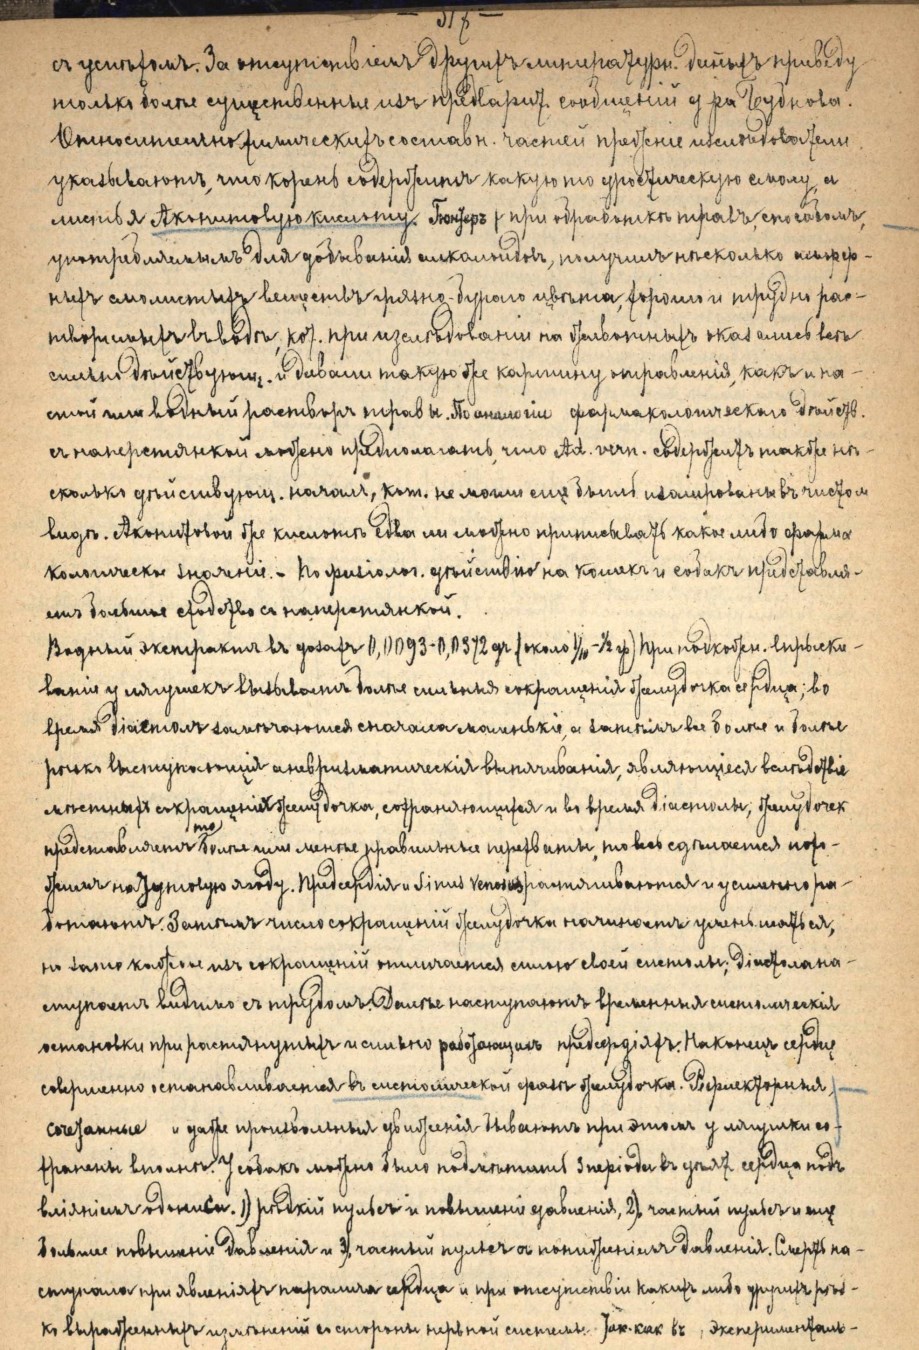 — 317 —
съ успѣхомъ. За отсутствіемъ другихъ литературн. данныхъ приведу
только болѣе существенные изъ предварит. сообщеній д-ра Бубнова.
Относительно химическихъ составн. частей прежніе изслѣдователи
указываютъ, что корень содержитъ какую то дростическую смолу, а
листья Аконитовую кислоту. при обработкѣ травъ, способомъ,
употребляемымъ для добыванія алкалоидовъ, получилъ нѣсколько аморф-
ныхъ смолистыхъ веществъ грязно-бураго цвѣта, хорошо и трудно рас-
творимыхъ въ водѣ, кот. при изслѣдованіи на животныхъ оказались весь
сильно дѣйствующ. и давали такую же картину отравленія, какъ и на-
стой или водный растворъ травы. По аналогіи фармакологическаго дѣйств.
съ наперстянкой можно предполагать, что Ad. vern. содержитъ также нѣ-
сколько дѣйствующ. началъ, кот. не могли еще быть изолированы въ чистом
видѣ. Аконитовой же кислотѣ едва ли можно приписывать какое либо фарма
кологическое значеніе. - По физіолог. дѣйствію на кошекъ и собакъ представля-
етъ большое сходство съ наперстянкой.
Водный экстрактъ въ дозахъ 0,0093-0,0372 gr. (около 1/10 - 1/2 гр) при подкожн. впрыски-
ваніе у лягушекъ вызываетъ болѣе сильныя сокращенія желудочка сердца; во
время діастолъ замѣчаются сначала маленькіе, а затѣмъ все болѣе и болѣе
рѣзко выступающія аневризматическія выпячиванія, являющіеся вслѣдствіе
мѣстныхъ сокращеній желудочка, сохраняющихся и во время діастолы; желудочек
представляетъ то болѣе или менѣе правильные перехваты, то весь сдѣлается похо-
жимъ на тутовую ягоду. Предсердія и Sinus venosus растягиваются и усиленно ра-
ботаютъ. Затѣмъ число сокращеній желудочка начинаетъ уменьшаться,
но зато каждое изъ сокращеній отличается силою своей систолы; діастола на-
ступаетъ видимо съ трудомъ. Далѣе наступаютъ временныя систолическія
остановки при растянутыхъ и сильно работающихъ предсердіяхъ. Наконецъ сердце
совершенно останавливается въ систолической фазѣ желудочка. Рефлекторныя,
сочетанные и даже произвольныя движенія бываютъ при этомъ у лягушки со-
хранены вполнѣ. У собакъ можно было подмѣтить 3 періода въ дѣят. сердца подъ
вліяніемъ адониса. 1) рѣдкій пульсъ и повышеніе давленія, 2) частый пульсъ и еще
большее повышеніе давленія и 3) частый пульсъ съ пониженіемъ давленія. Смерть на-
ступала при явленіяхъ паралича сердца и при отсутствіи какихъ либо другихъ рѣз-
ко выраженныхъ измѣненій со стороны нервной системы. Так-как въ экспериментал-